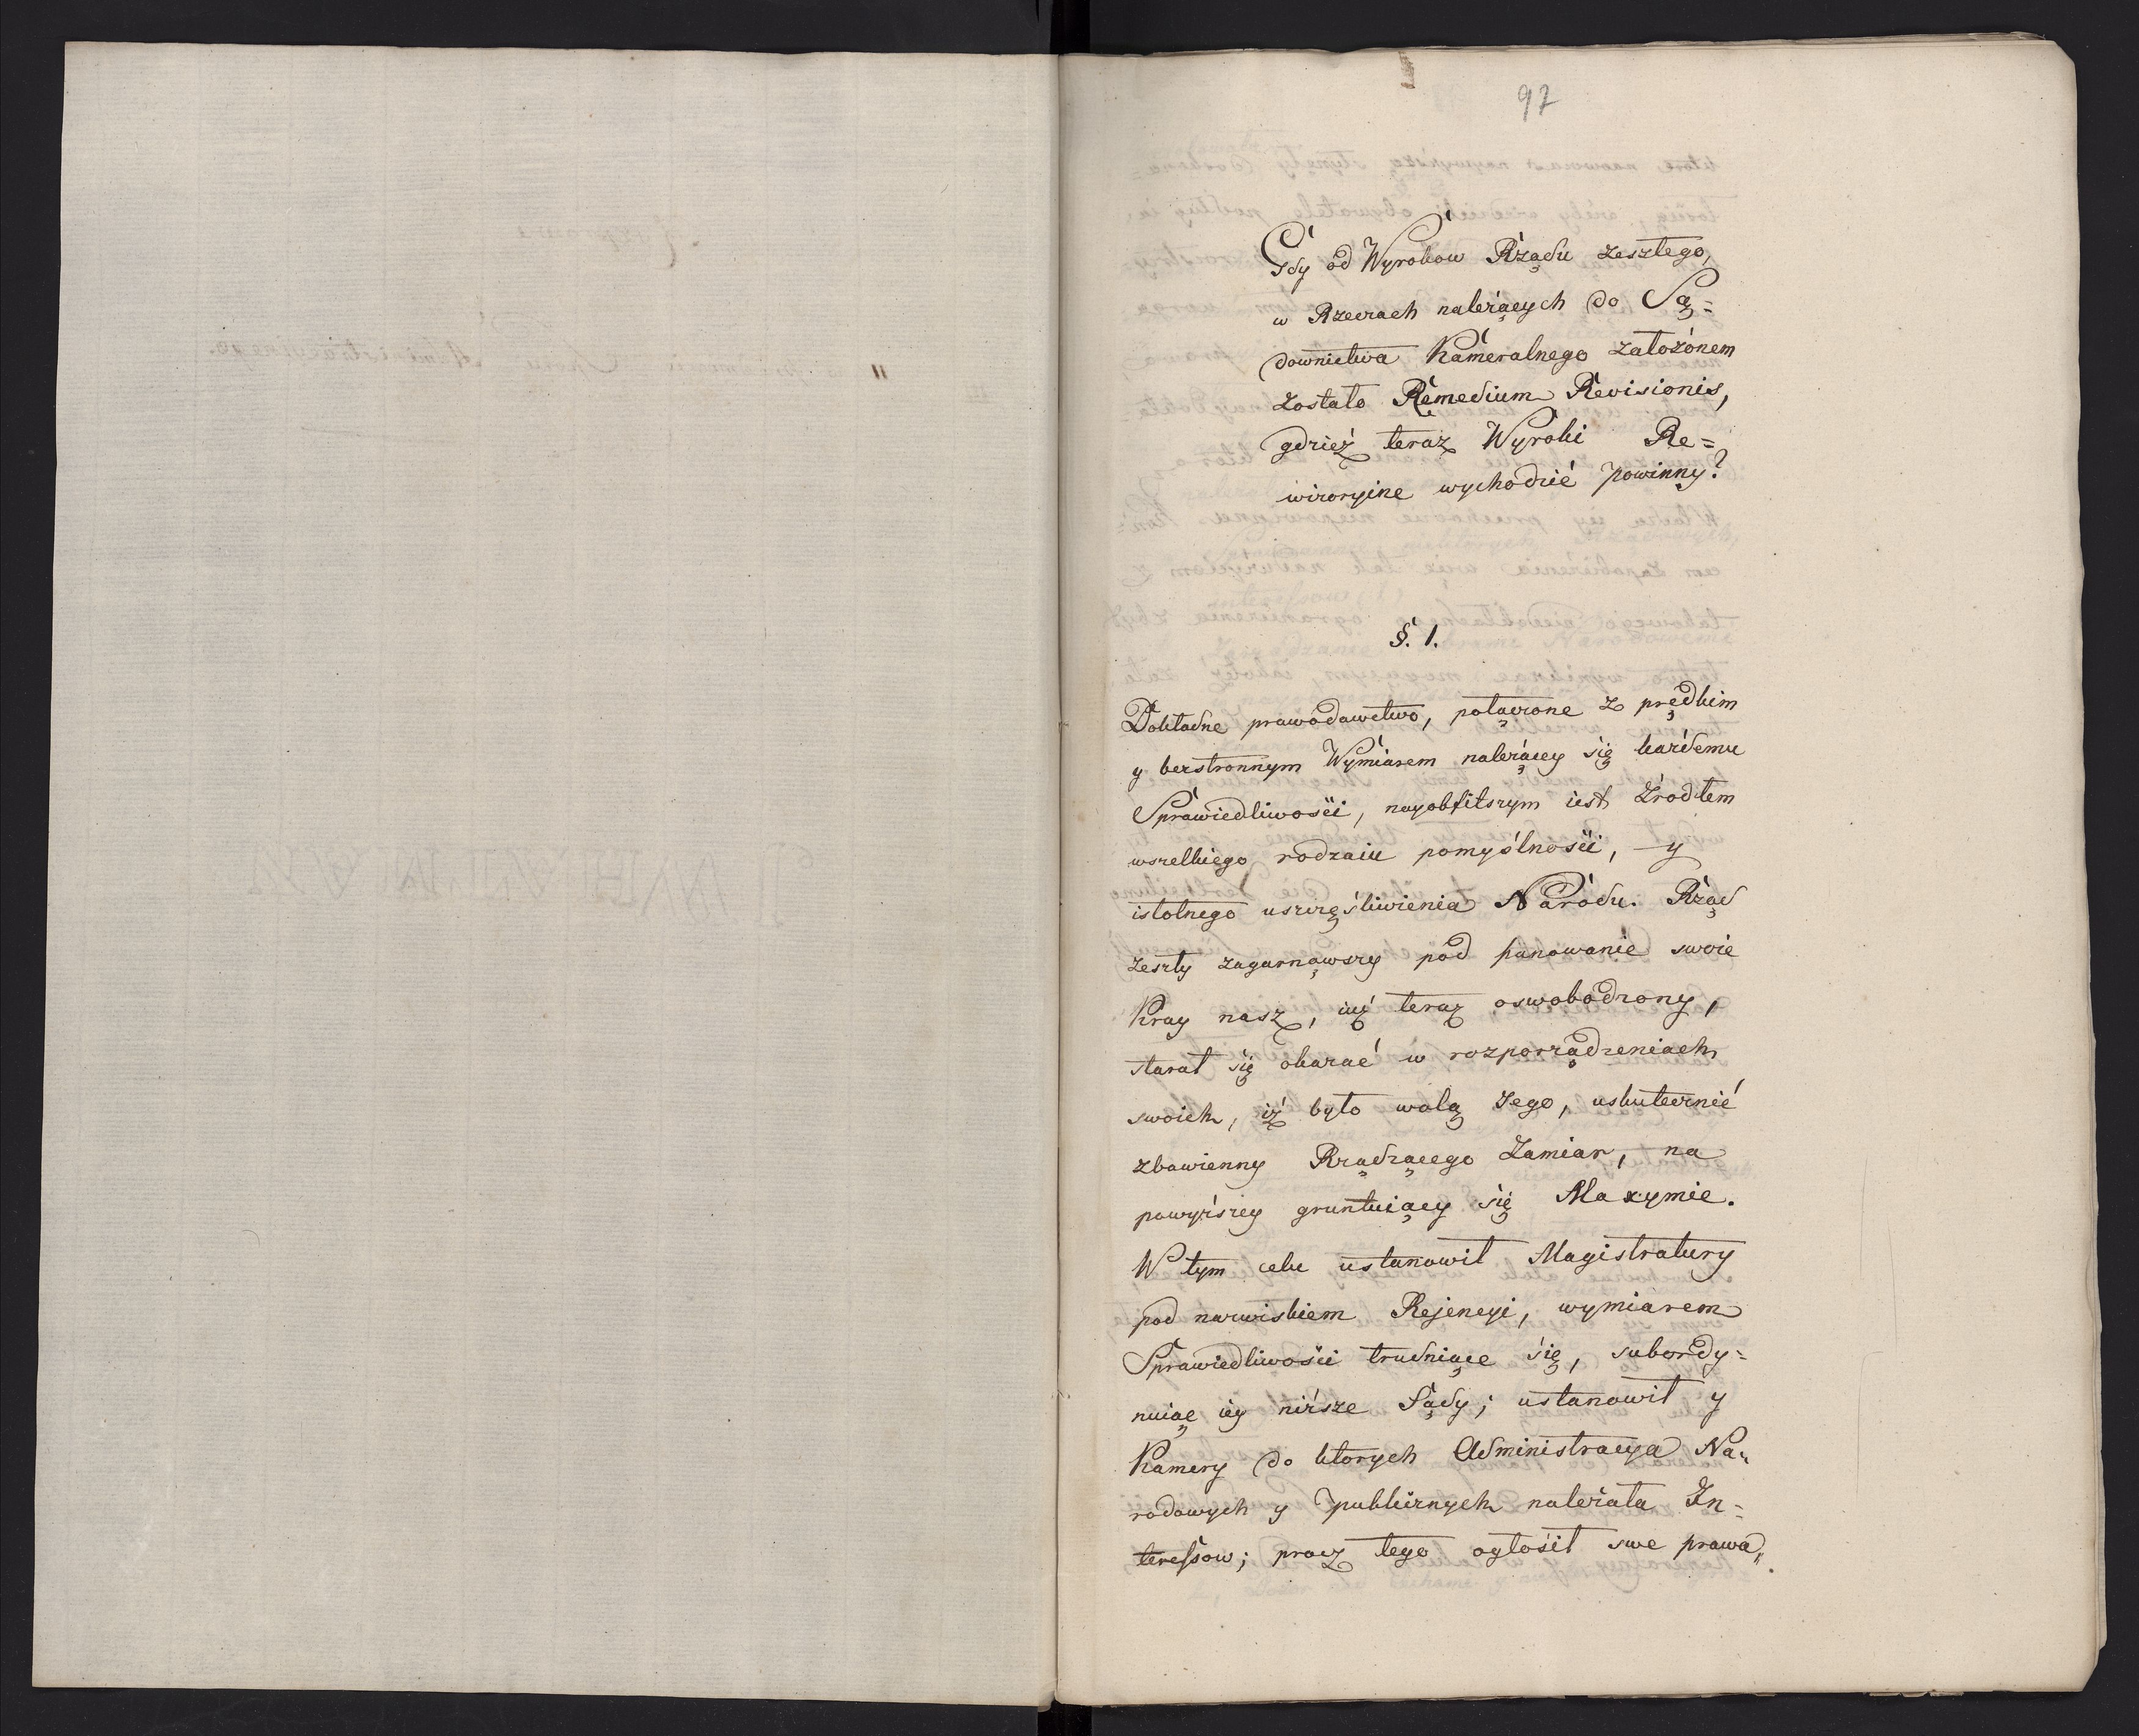 97
Gdy od Wyrokow Rządu zeszłego,
w Rzeczach należących do Są=
downictwa Kameralnego założonem
zostało Remedium Revisionis,
gdzież teraz Wyroki Re=
wizoryine wychodzić powinny?
§. 1.
Dokładne prawodawctwo, połączone z prędkim
y bezstronnym Wymiarem należącey się każdemu
Sprawiedliwości, nayobfitszym iest źrodłem
wszelkiego rodzaiu pomyślności, y
istotnego uszczęśliwienia Narodu. Rząd
zeszły zagarnąwszy pod panowanie swoie
Kray nasz, iuż teraz oswobodzony,
starał się okazać w rozporządzeniach
swoich, iż było wolą Jego, uskutecznić
zbawienny Rządzącego Zamiar, na
powyższey gruntuiącey się Maxymie.
W tym celu ustanowił Magistratury
pod nazwiskiem Rejencyi, wymiarem
Sprawiedliwości trudniące się, subordy=
nuiąc iey niższe Sądy; ustanowił y
Kamery do ktorych Administracya Na„
rodowych y publicznych należała In=
teressow; procz tego ogłosił swe prawa„.